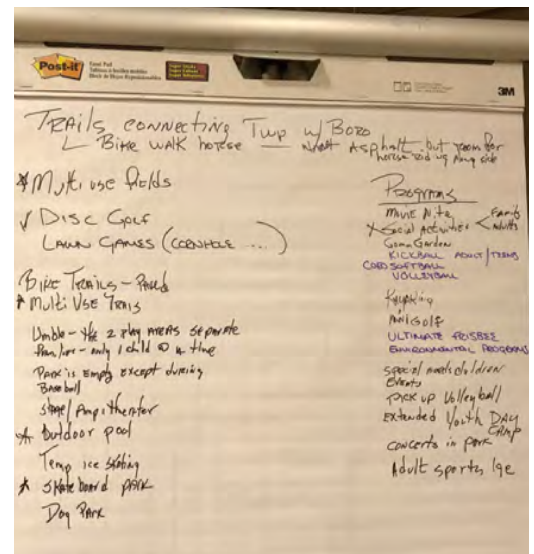 Post-it
Super Sticky
3M
TRAILS CONNECTING TWP W/ BORO
BIKE WALK HORSE — Asphalt but room for
horse riding along side
Multi use fields
✓ DISC GOLF
LAWN GAMES (CORNHOLE ...)
BIKE TRAILS - PAVED
* Multi USE TRAILS
the 2 play AREAS SEPARATE
only 1 child @ a time
PARK is Empty EXCEPT during
Baseball
Stage/Ampitheater
* Outdoor pool
Temp ice skating
* Skateboard PARK
Dog PARK
Programs
Movie Nite
X Social Activities < Family
Adults
Comm Garden
KICKBALL ADULT/TEENS
COED SOFTBALL
VOLLEYBALL
Kayaking
Mini Golf
ULTIMATE FRISBEE
ENVIRONMENTAL PROGRAMS
Special needs children
Events
Pick up Volleyball
Extended Youth DAY
CAMP
CONCERTS in PARK
Adult sports lge